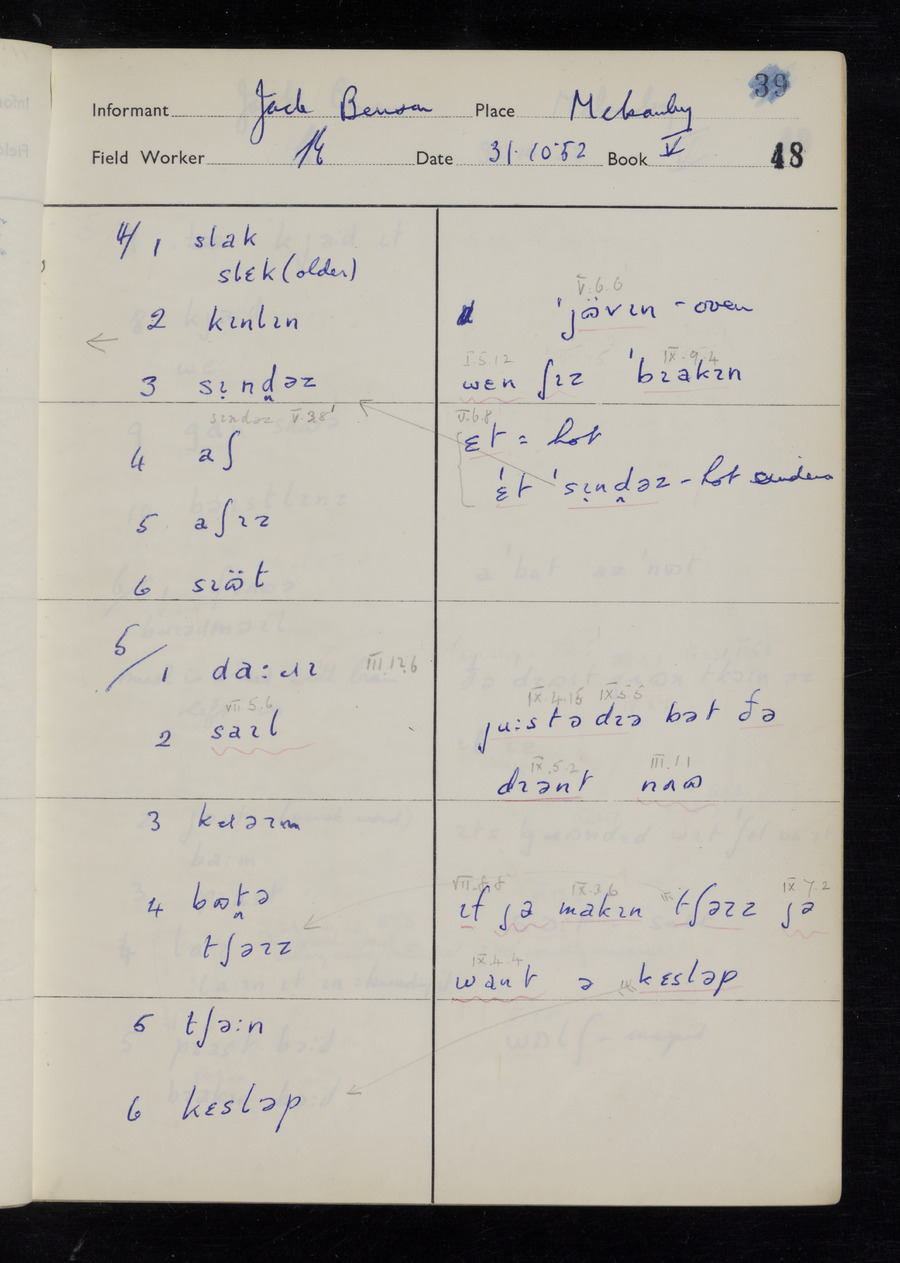 39
Informant Jack Benson Place Melsonby
Field Worker Date 31·10·52 Book V 48
4/ 1 slak
slɛk (older)
2 kɪnlɪn
3 sɪ̣nd̪əz
sɪndəz V.3.8
4 aʃ
5 aʃɪz
6 sɪöt
5/ 1 da:ɹɪ III.12.6
VII.5.6
2 saɪl
3 kɹɪəm
4 bʊt̪ə
tʃəɪz
5 tʃə:n
6 kɛsləp
V.6.6
ˈjövɪn - oven
I.5.12 IX.9.4
wɛn ʃɪz ˈbɪakɪn
V.6.8
ɛt = hot
ˈɛt ˈsɪ̣nd̪əz - hot cinders
IX.4.15 IX.5.5
ju:stə dɪə bət ðə
IX.5.2 III.1.1
dɪənt nʌʊ
VII.8.8 IX.3.6 IX.7.2
ɪf jə makɪn tʃəɪz jə
IX.4.4
want ə kɛsləp